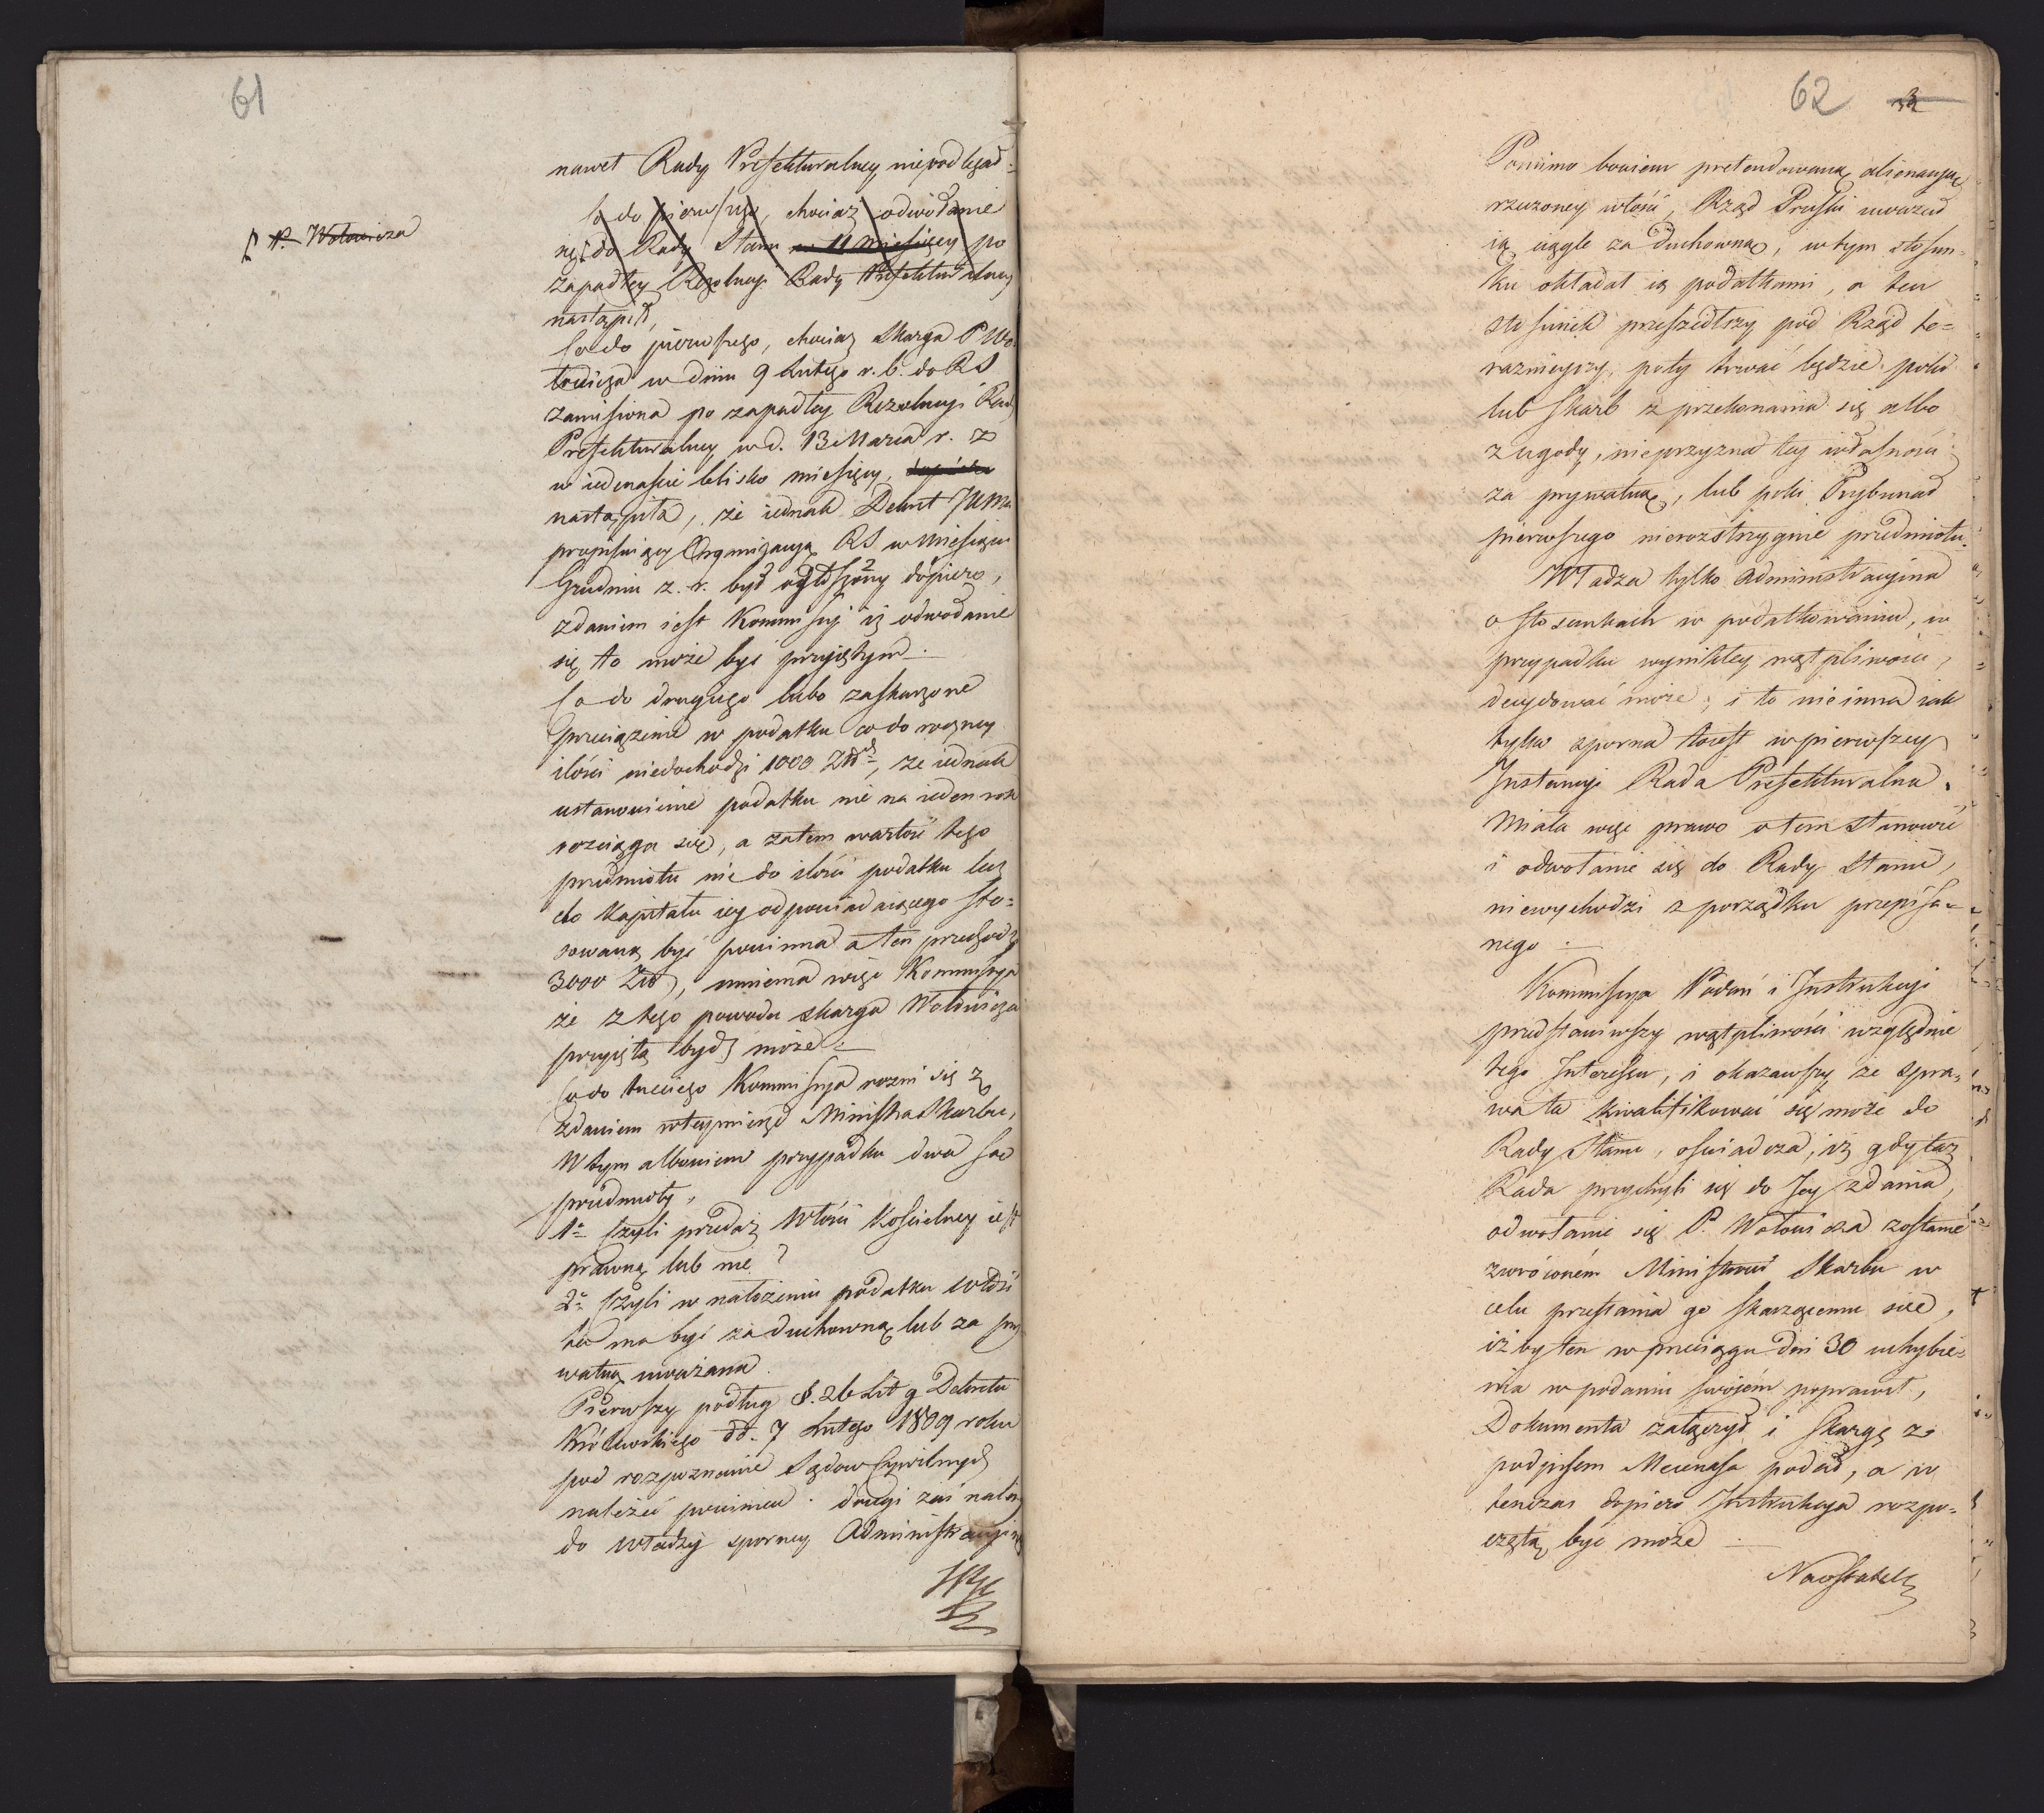 61
nawet Rady Prefekturalney niepodlegał=
Co do pierwszego, chociaż odwołanie
P. Wołowicza
się do Rady Stanu w 11 Miesięcy po
zapadłey Rezolucyi Rady Prefekturalney
nastąpiło,
Co do pierwszego, chociaż skarga P Wo=
łowicza w dniu 9 Lutego r. b. do RS
zaniesiona po zapadłey Rezolucyi Rady
Prefekturalney w d. 13 Marca r. z
w iedenaście blisko miesięcy,
nastąpiła, że iednak Dekret JKM
przepisuiący Organizacyą RS w Miesiącu
Grudniu z. r. był ogłoszony dopiero,
zdaniem iest Kommissyi iż odwołanie
się to może być przyiętym.
Co do drugiego lubo zaskarżone
przeciążenie w podatku co do roczney
ilości niedochodzi 1000 Złł, że iednak
ustanowienie podatku nie na ieden rok
rozciąga się, a zatem wartość tego
przedmiotu nie do ilości podatku lecz
do Kapitału iey odpowiadaiącego sto=
sowaną być powinna a ten przechodzi
3000 Złł, mniema więc Kommissya
że z tego powodu skarga Wołowicza
przyiętą bydź może.
Co do trzeciego Kommissya rożni się z
zdaniem w tey mierze Ministra Skarbu,
W tym albowiem przypadku dwa są
przedmioty,
1o czyli przedaż Włości Kościelney iest
prawną lub nie?
2o czyli w nałożeniu podatku włość
ta ma być za duchowną lub za pry
watną uważana.
Pierwszy podług §. 26 Lit g Dekretu
Królewskiego dd. 7 Lutego 1809 roku
pod rozpoznanie Sądow Cywilnych
należeć powinien. drugi zaś należy
do władzy sporney Administracyiney
62
Pomimo bowiem pretendowaną alienacyą
rzeczoney włości, Rząd Pruski uważał
ią ciągle za Duchowną, w tym stosun=
ku okładał ią podatkami, a ten
stosunek przeszedłszy pod Rząd te=
raznieyszy, poty trwać będzie poki
lub Skarb z przekonania się albo
z ugody, nieprzyzna tey własności
za prywatną, lub poki Trybunał
pierwszego nierozstrzygnie przedmiotu.
Władza tylko Administracyina
o stosunkach w podatkowaniu, w
przypadku wynikłey wątpliwości,
decydować może, i to nie inna iak
tylko sporna to iest w pierwszey
Instancyi Rada Prefekturalna.
Miała więc prawo o tem stanowić
i odwołanie się do Rady Stanu,
niewychodzi z porządku przepisa=
nego.
Kommissya Podań i Instrukcyi
przedstawiwszy wątpliwości względnie
tego Interessu, i okazawszy że spra=
wa ta kwalifikować się może do
Rady Stanu, oświadcza, iż gdy taż
Rada przychyli się do Jey zdania,
odwołanie się P. Wołowicza zostanie
zwróconém Ministrowi Skarbu w
celu przesłania go skarżącemu się,
iżby ten w przeciągu dni 30 uchybie=
nia w podaniu swoiém poprawił,
Dokumenta załączył i skargę z
podpisem Mecenasa podał, a w
tenczas dopiero Instrukcya rozpo=
częta być może.